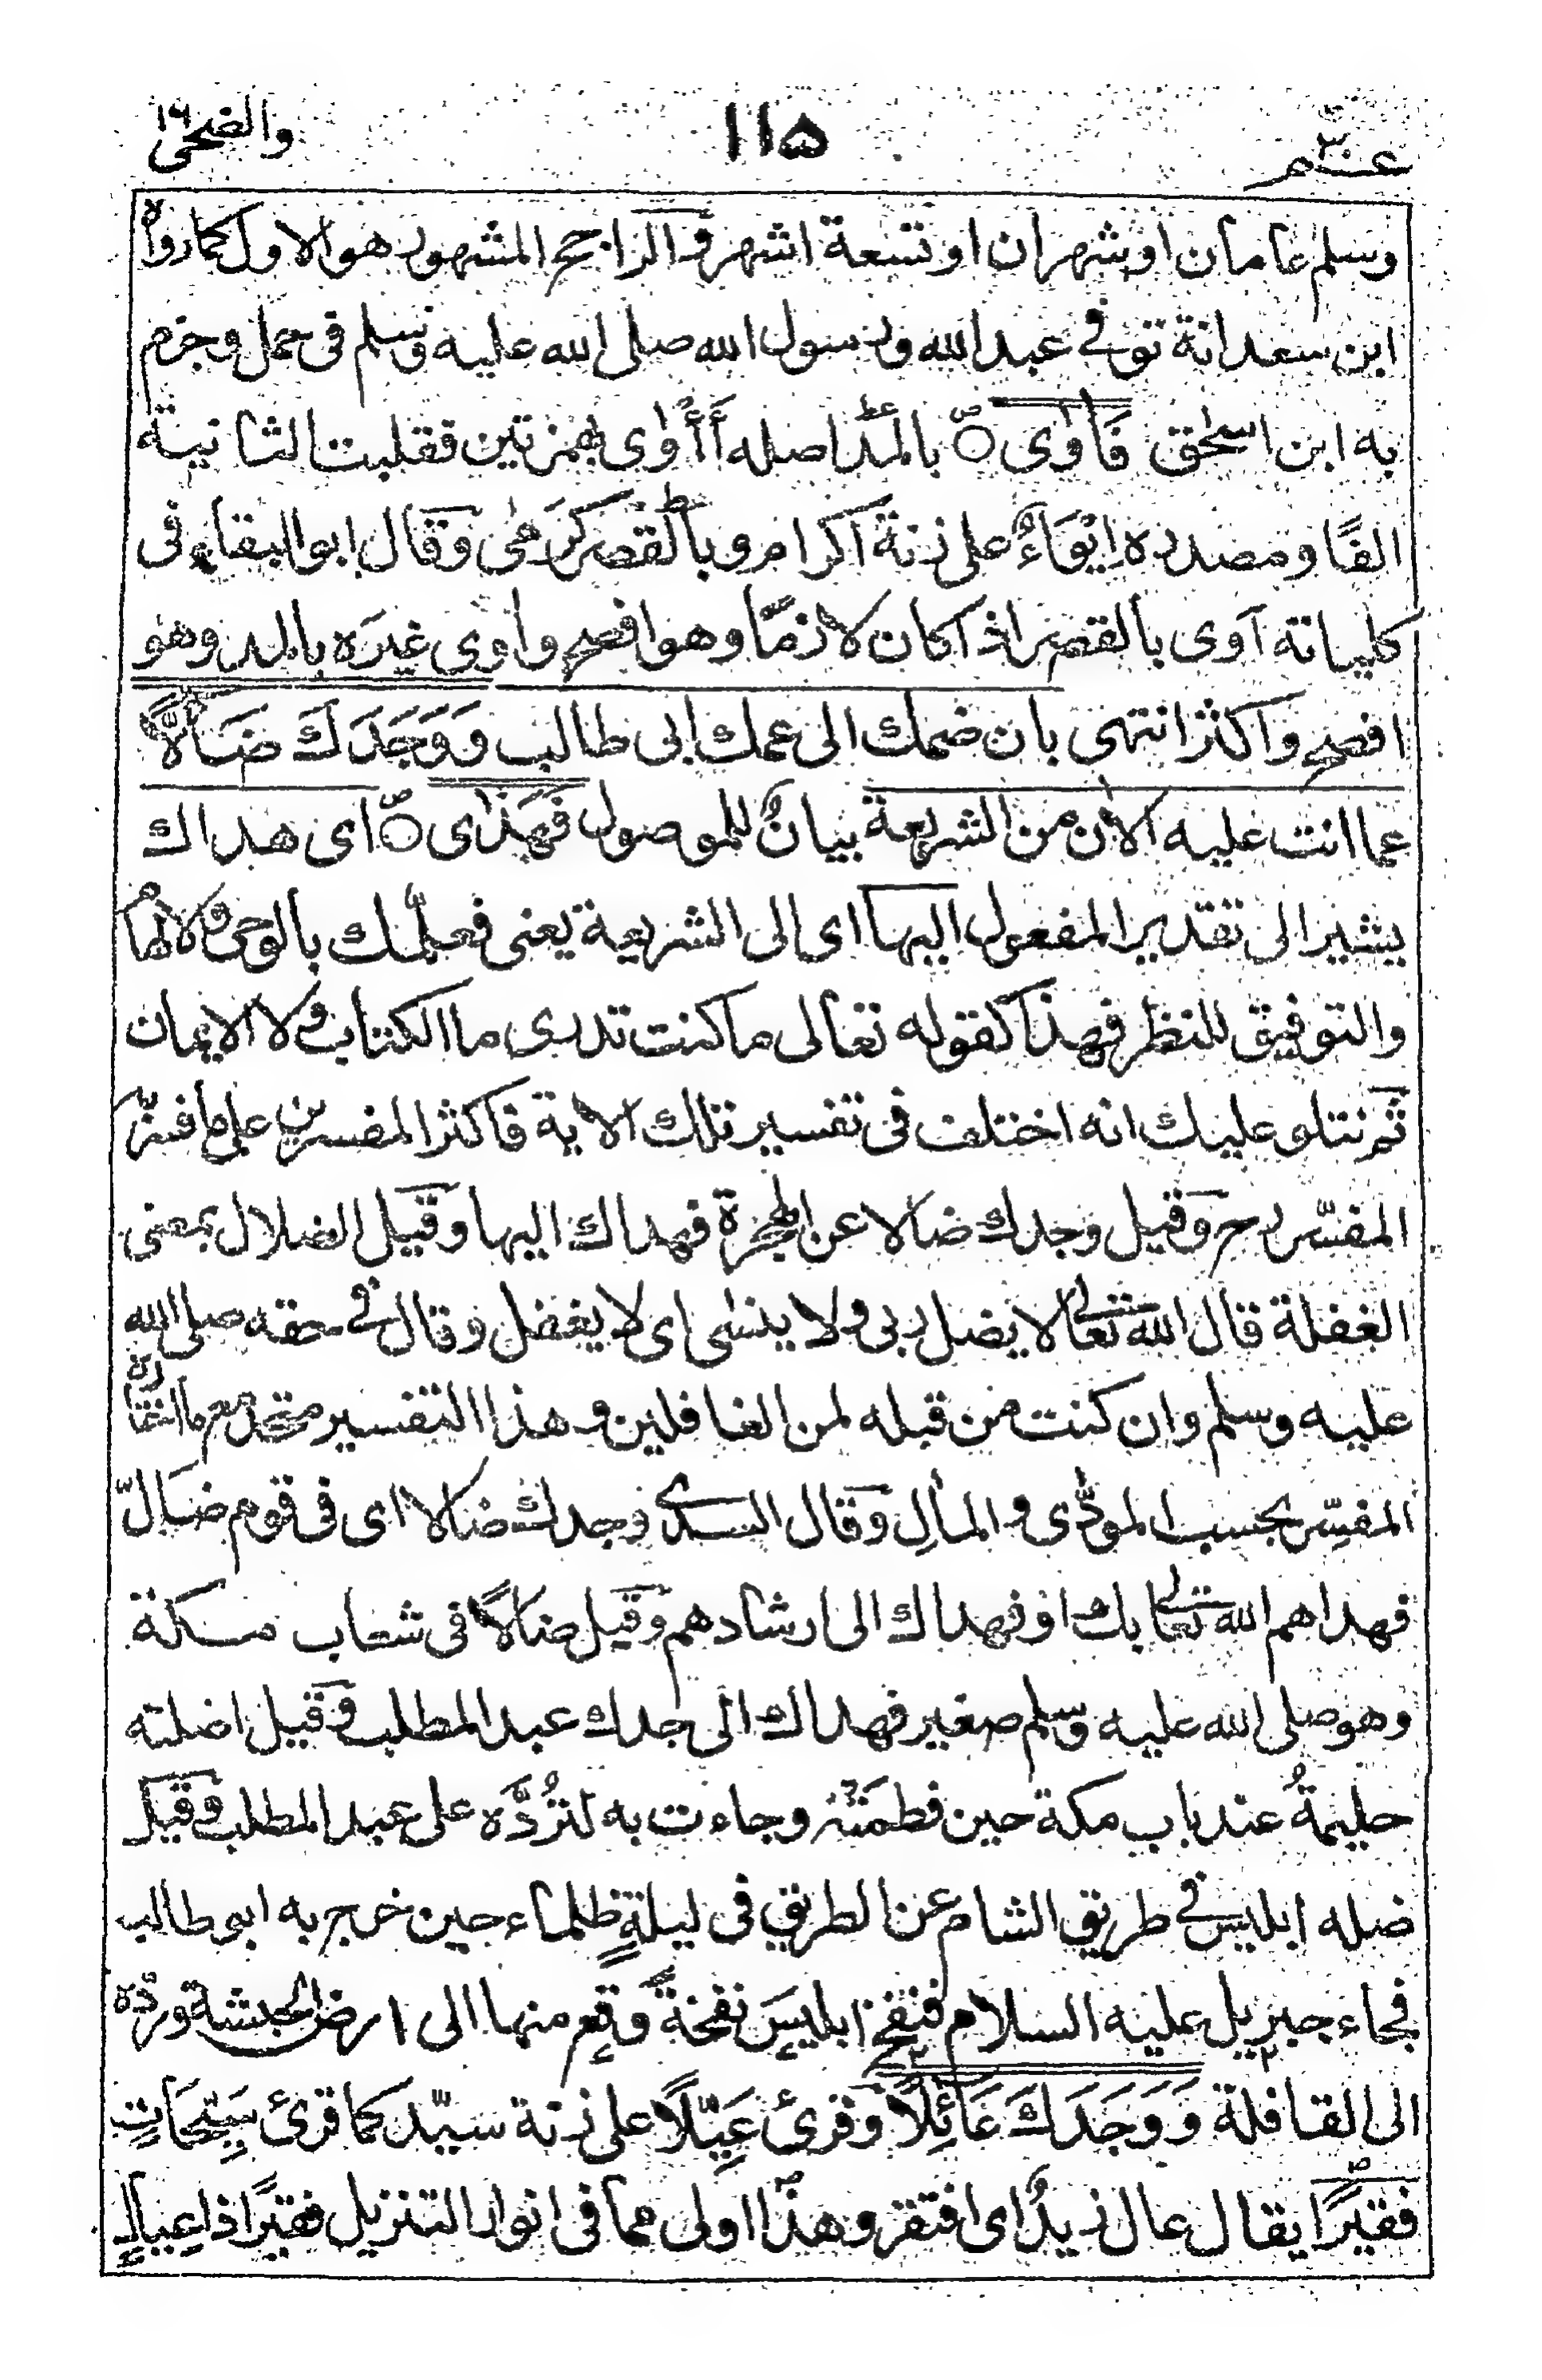 عـــم ٣٠
١١٥
والضحى ١٦
وسلم عامان او شهران او تسعة اشهر والراجح المشهور هو الاول كما رواه
ابن سعد انة توفى عبد الله ورسول الله صلى الله عليه وسلم فى حمل وجزم
به ابن اسحٰق فَاٰوٰى بالمد اصله أَأْوٰى بهمزتين فقلبت الثانية
الفًا ومصدره اِيْوَاءٌ على زنة اكرام وبالقصر كَرَمٰى وقال ابو البقاء فى
كلياته آوى بالقصر اذا كان لازمًا وهو افصح واوى غيرَه بالمد وهو
افصح واكثر انتهى بان ضمك الى عمك ابى طالب وَوَجَدَكَ ضَالًّا
عما انت عليه الاٰن من الشريعة بيانٌ للموصول فَهَدٰى اى هداك
يشير الى تقدير المفعول اليها اى الى الشريعة يعنى فعلّمك بالوحى والالهام
والتوفيق للنظر فهذا كقوله تعالى ما كنت تدرى ما الكتاب ولا الايمان
ثم نتلو عليك انه اختلف فى تفسير تلك الاية فاكثر المفسرين على ما فسرّ
المفسّر رح وقيل وجدك ضالا عن الهجرة فهداك اليها وقيل الضلال بمعنى
الغفلة قال الله تعالى لا يضل ربى ولا ينسٰى اى لا يغفل وقال فى حقه صلى الله
عليه وسلم وان كنت من قبله لمن الغافلين وهذا التفسير متحد مع ما اختاره
المفسّر بحسب المؤدّى والمأٰلِ وقال السدى وجدك ضالا اى فى قوم ضَالّ
فهداهم الله تعالى بك او فهداك الى ارشادهم وقيل ضالًا فى شعاب مـــكة
وهو صلى الله عليه وسلم صغير فهداك الى جدك عبد المطلب وقيل اضلته
حليمةُ عند باب مكة حين فطمَتْه وجاءت به لتَرُدَّه على عبد المطلب وقيل
ضله ابليس فى طريق الشام عن الطريق فى ليلةٍ ظلماء حين خرج به ابو طالب
فجاء جبريل عليه السلام فنفخ ابليسَ نفخةً وقع منها الى ارض الحبشة وردّه
الى القافلة وَوَجَدَكَ عَائِلًا وقرئ عَيِّلًا على زنة سيّد كما قرئ سَيِّحَاتٍ
فقيرًا يقال عال زيدٌ اى افتقر وهذا اولى مما فى انوار التنزيل فقيرًا ذا عيالٍ